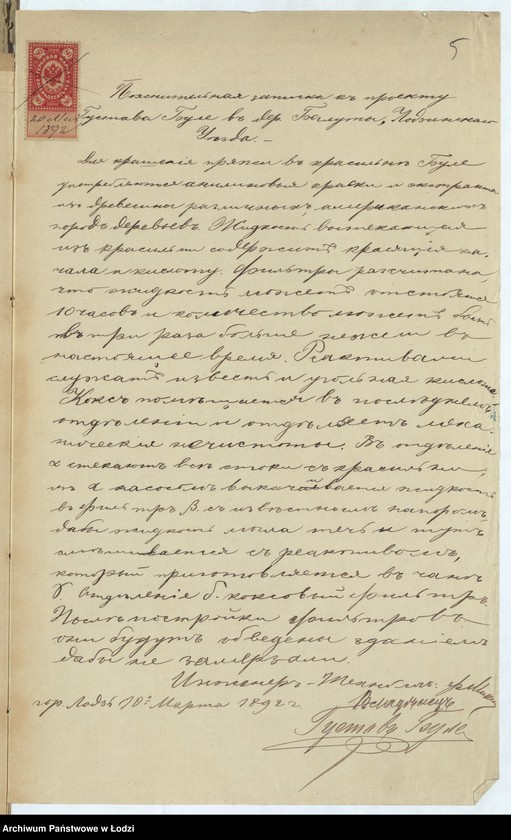 5
20 Мая
1892
Пояснительная записка къ проекту
Густава Буле въ дер. Балуты, Лодзинскаго
Уѣзда. –
Для крашенія пряжи въ красильнѣ Буле
употребляются анилиновыя краски и экстракты
изъ древесины различныхъ американскихъ
породъ деревьевъ. Жидкость вытекающая
изъ красильни содержитъ красящія на-
чала и кислоту. Фильтры разсчитаны,
что жидкость можетъ отстояться
10 часовъ и количество можетъ быть
въ три раза больше нежели въ
настоящее время. Реактивами
служатъ известь и угольная кислота.
Коксъ помѣщается въ послѣднемъ
отдѣленіи и отдѣляетъ меха-
ническія нечистоты. Въ отдѣленіе
α стекаютъ всѣ стоки съ красильни,
изъ α насосомъ выкачивается жидкость
въ фильтръ β. съ извѣстнымъ напоромъ,
дабы жидкость могла течь и тутъ
смѣшивается съ реактивомъ,
который приготовляется въ чанѣ
γ. Отдѣленіе δ. коксовый фильтръ.
Послѣ постройки фильтровъ
они будутъ обведены зданіемъ
дабы не замерзали.
Инженеръ-Технологъ:
гор. Лодзь 10го Марта 1892 г. Владѣлецъ
Густавъ Буле
Archiwum Państwowe w Łodzi